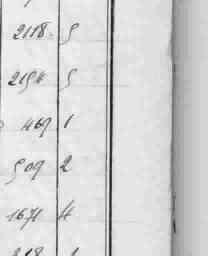 2118. 5
2154 5
469 1
509 2
1671 4
218 1